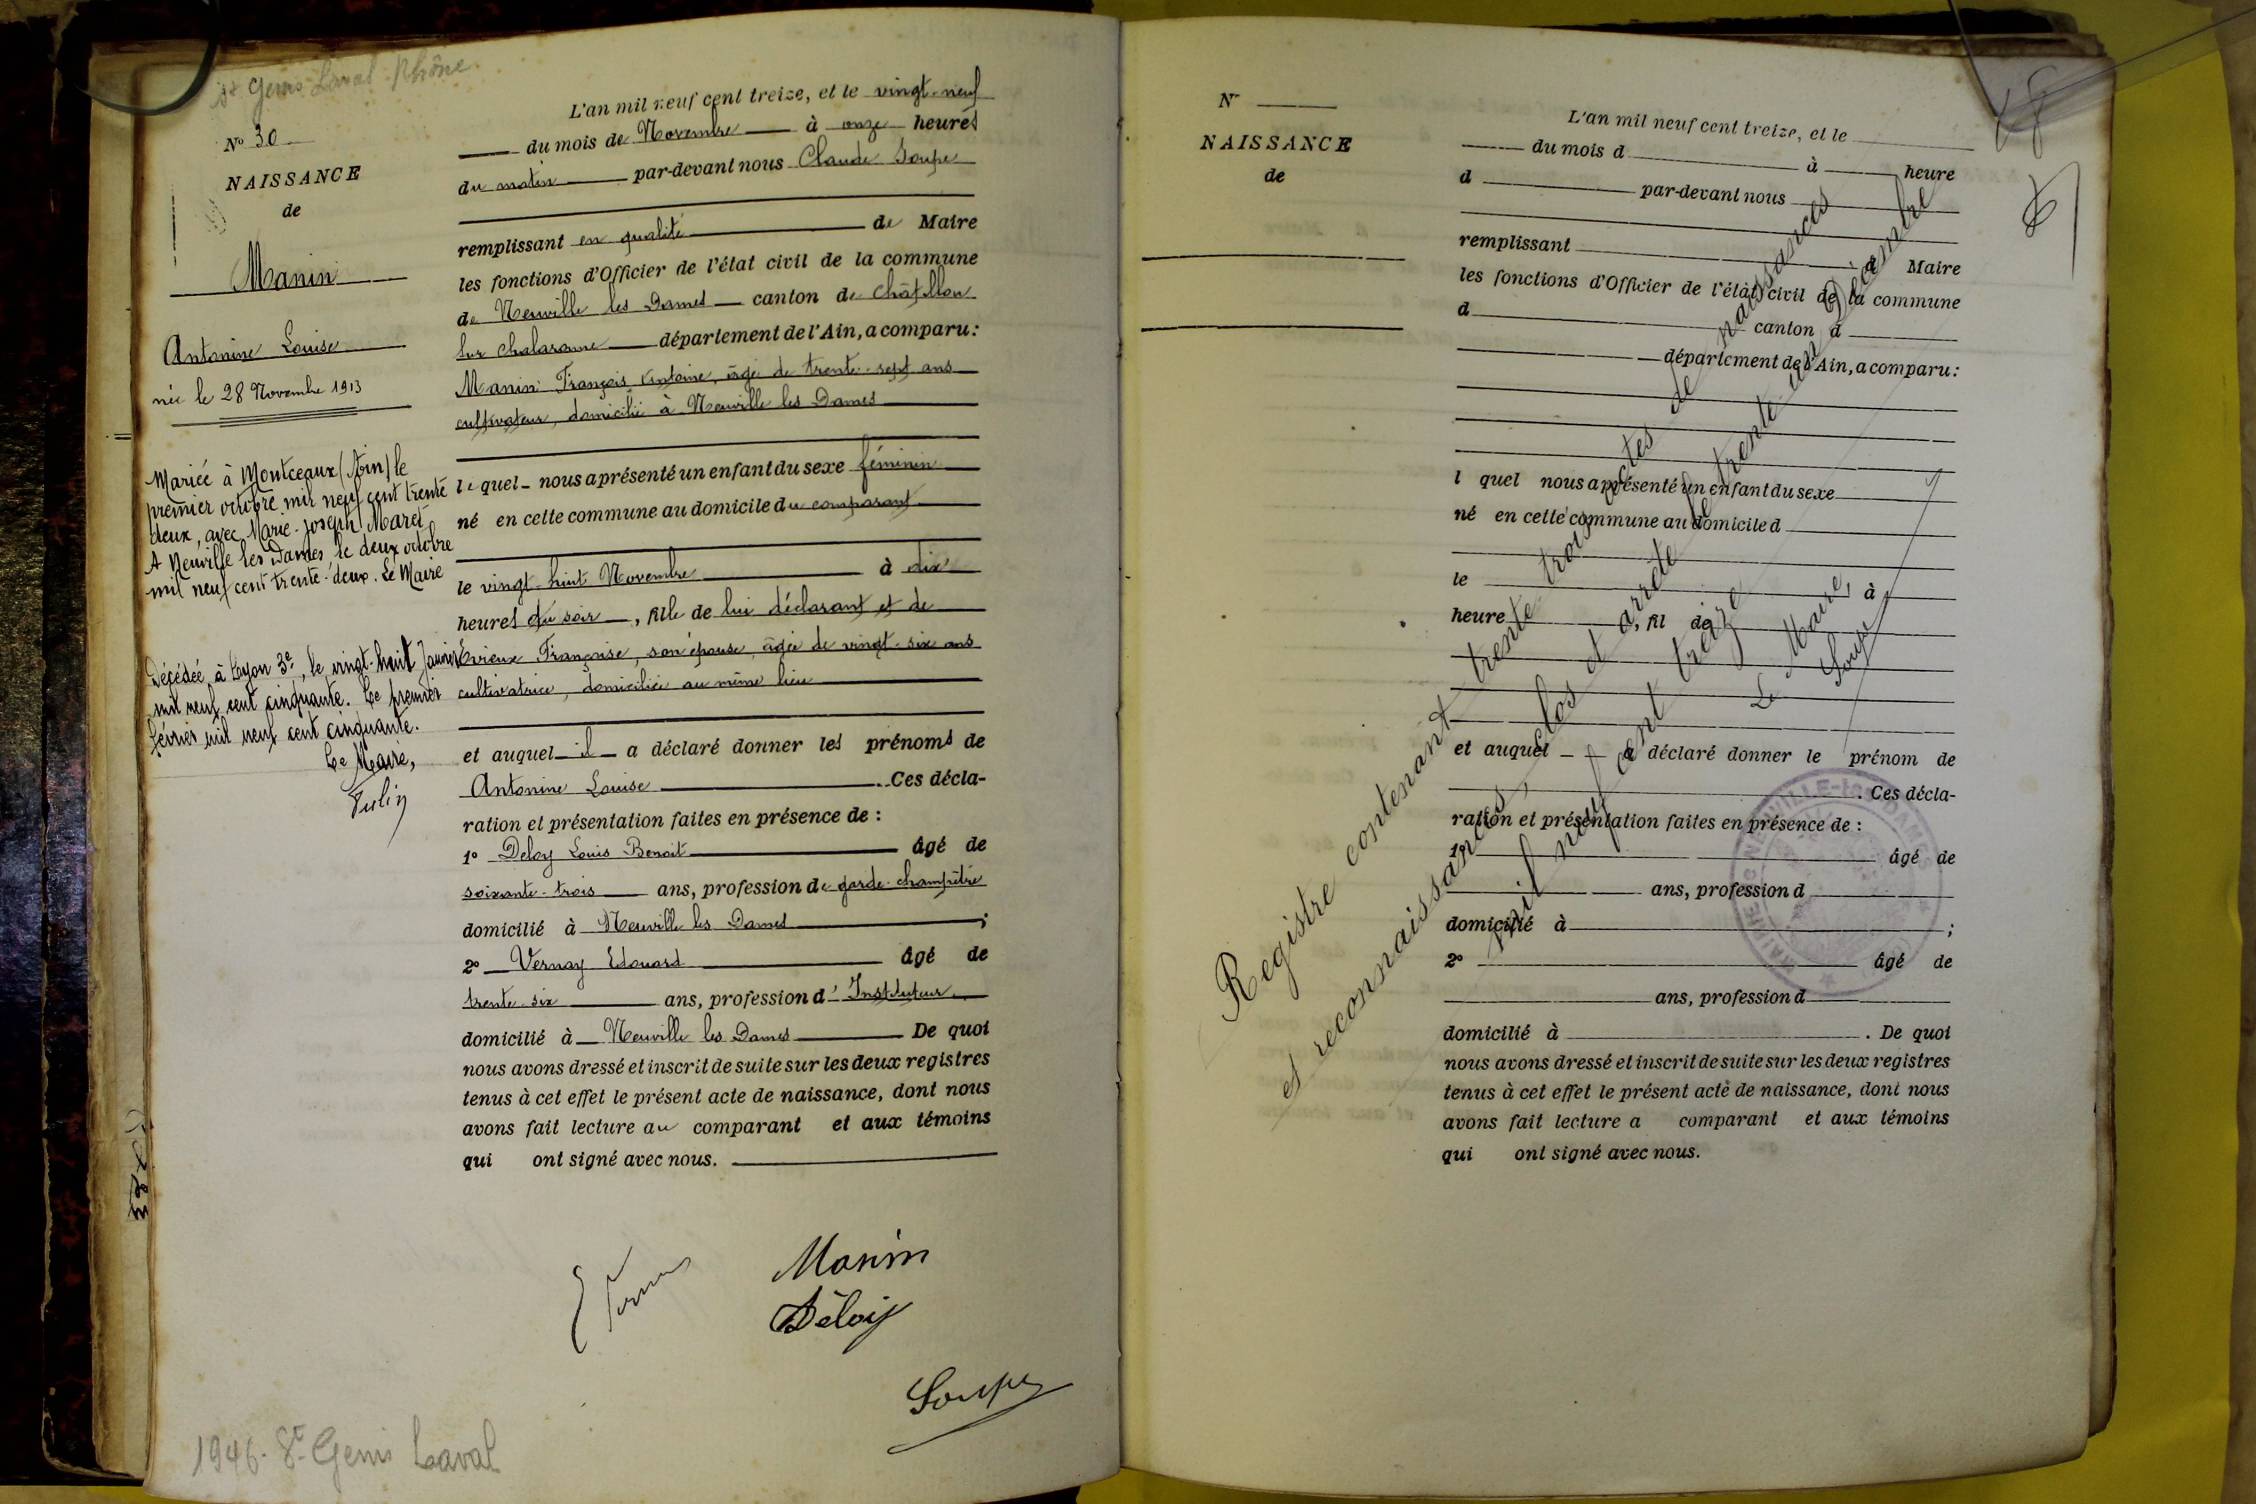 St Genis Laval Rhône
No 30
NAISSANCE
de
Manin
Antonine Louise
née le 28 Novembre 1913
Mariée à Montceaux (Ain) le
premier octobre mil neuf cent trente
deux, avec Marie-Joseph Maret
A Neuville les Dames le deux octobre
mil neuf cent trente-deux. Le Maire
Décédée à Lyon 3e, le vingt-huit Janvier
mil neuf cent cinquante. Le premier
février mil neuf cent cinquante.
Le Maire,
L'an mil neuf cent treize, et le vingt-neuf
du mois de Novembre à onze heures
du matin par-devant nous Claude Soupe
remplissant en qualité de Maire
les fonctions d'Officier de l'état civil de la commune
de Neuville les Dames canton de Châtillon
sur Chalaronne département de l'Ain, a comparu:
Manin François Antoine, âgé de trente-sept ans
cultivateur, domicilié à Neuville les Dames
lequel nous a présenté un enfant du sexe féminin
né en cette commune au domicile du comparant
le vingt-huit Novembre à dix
heures du soir, fille de lui déclarant et de
Evieux Françoise, son épouse, âgée de vingt-six ans
cultivatrice, domiciliée au même lieu
et auquel il a déclaré donner les prénoms de
Antonine Louise. Ces décla-
ration et présentation faites en présence de :
1° Deloy Louis Benoit âgé de
soixante-trois ans, profession de garde-champêtre
domicilié à Neuville les Dames ;
2° Vernay Edouard âgé de
trente-six ans, profession d'Instituteur
domicilié à Neuville les Dames De quoi
nous avons dressé et inscrit de suite sur les deux registres
tenus à cet effet le présent acte de naissance, dont nous
avons fait lecture au comparant et aux témoins
qui ont signé avec nous.
Manin
Déloy
Soupe
1946. St Genis Laval
N°
NAISSANCE
de
L'an mil neuf cent treize, et le
du mois d à heure
d par-devant nous
remplissant d Maire
les fonctions d'Officier de l'état civil de la commune
d canton d
département de l'Ain, a comparu:
l quel nous a présenté un enfant du sexe
né en cette commune au domicile d
le à
heure , fil de
et auquel a déclaré donner le prénom de
. Ces décla-
ration et présentation faites en présence de :
1° âgé de
ans, profession d
domicilié à ;
2° âgé de
ans, profession d
domicilié à . De quoi
nous avons dressé et inscrit de suite sur les deux registres
tenus à cet effet le présent acte de naissance, dont nous
avons fait lecture a comparant et aux témoins
qui ont signé avec nous.
Registre contenant trente trois actes de naissances
et reconnaissances, clos et arrêté le trente-un Décembre
mil neuf cent treize
Le Maire,
Soupe
MAIRIE DE NEUVILLE-les-DAMES